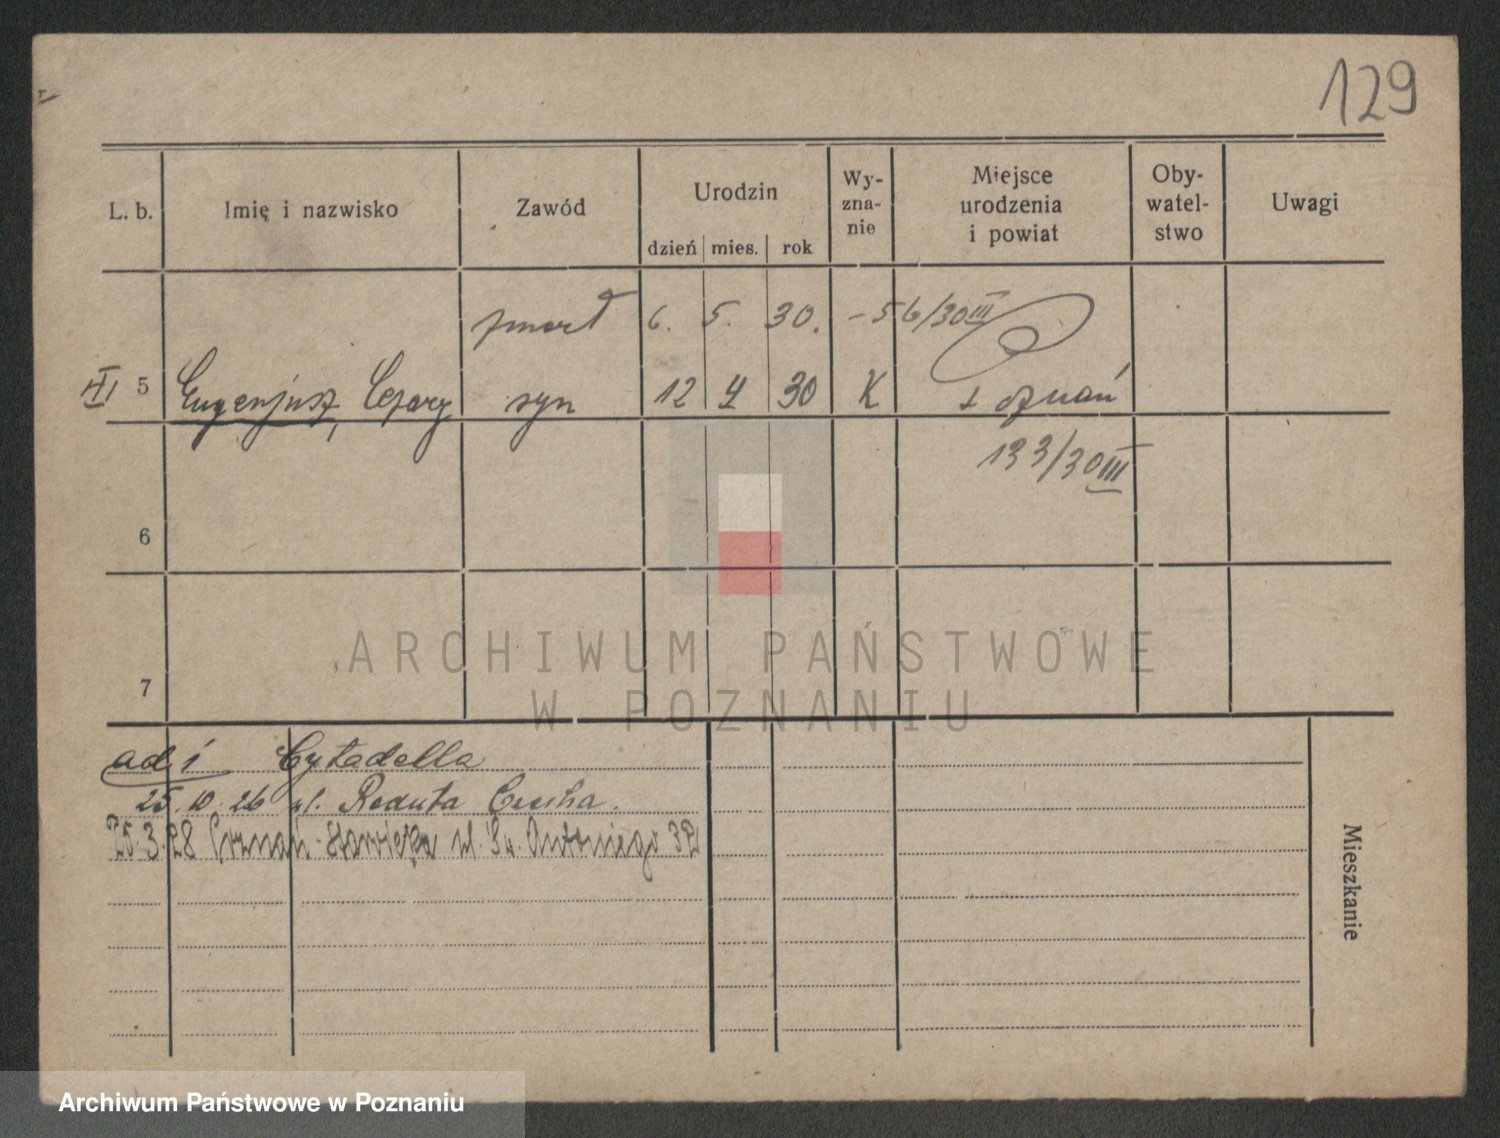 129
L. b. Imię i nazwisko Zawód Urodzin dzień mies. rok Wy-zna-nie Miejsce urodzenia i powiat Oby-watel-stwo Uwagi
zmarł 6. 5. 30. - 56/30 III
5 Eugenjusz, Cezary syn 12 4 30 K Poznań
133/30 III
6
7
ARCHIWUM PAŃSTWOWE
W POZNANIU
ad 1 Cytadella
25. 10. 26 ul. Reduta
25.3.28 Poznań ul. Św. Antoniego
Mieszkanie
Archiwum Państwowe w Poznaniu